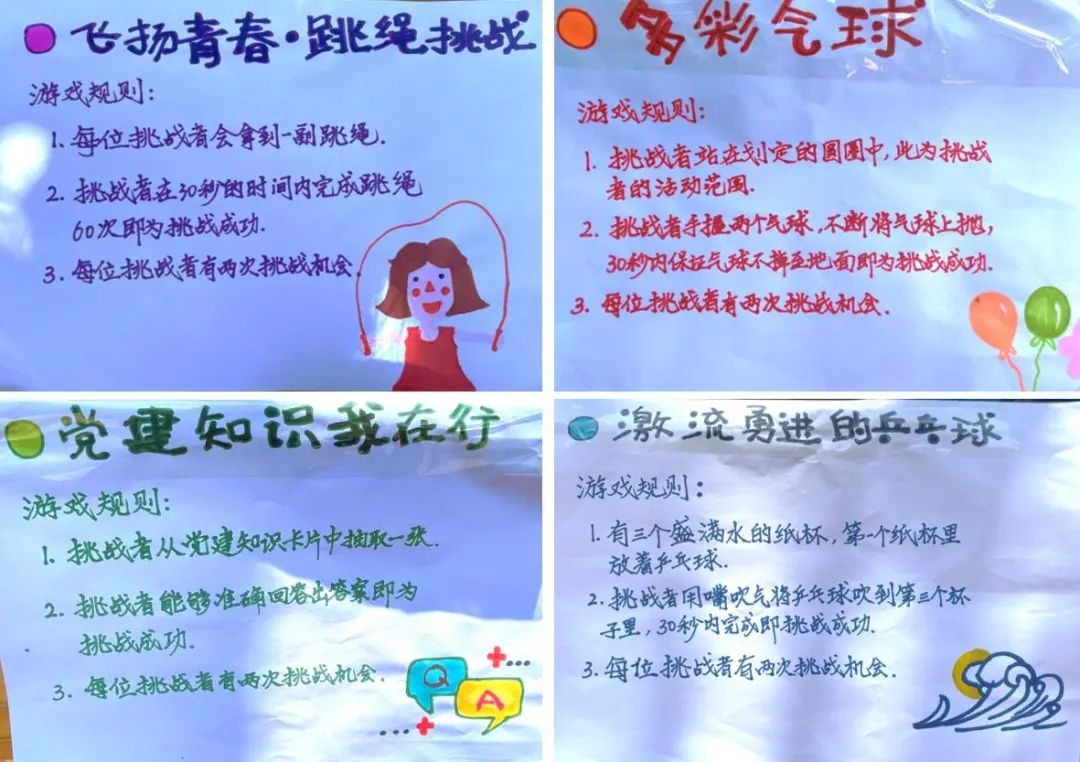 飞扬青春·跳绳挑战
游戏规则:
1. 每位挑战者会拿到一副跳绳.
2. 挑战者在30秒的时间内完成跳绳
60次即为挑战成功.
3. 每位挑战者有两次挑战机会.
多彩气球
游戏规则:
1. 挑战者站在划定的圆圈中,此为挑战
者的活动范围.
2. 挑战者手握两个气球,不断将气球上抛,
30秒内保证气球不掉至地面即为挑战成功.
3. 每位挑战者有两次挑战机会.
党建知识我在行
游戏规则:
1. 挑战者从党建知识卡片中抽取一张.
2. 挑战者能够准确回答出答案即为
挑战成功.
3. 每位挑战者有两次挑战机会.
Q
A
激流勇进的乒乓球
游戏规则:
1. 有三个盛满水的纸杯,第一个纸杯里
放着乒乓球.
2. 挑战者用嘴吹气将乒乓球吹到第三个杯
子里,30秒内完成即挑战成功.
3. 每位挑战者有两次挑战机会.